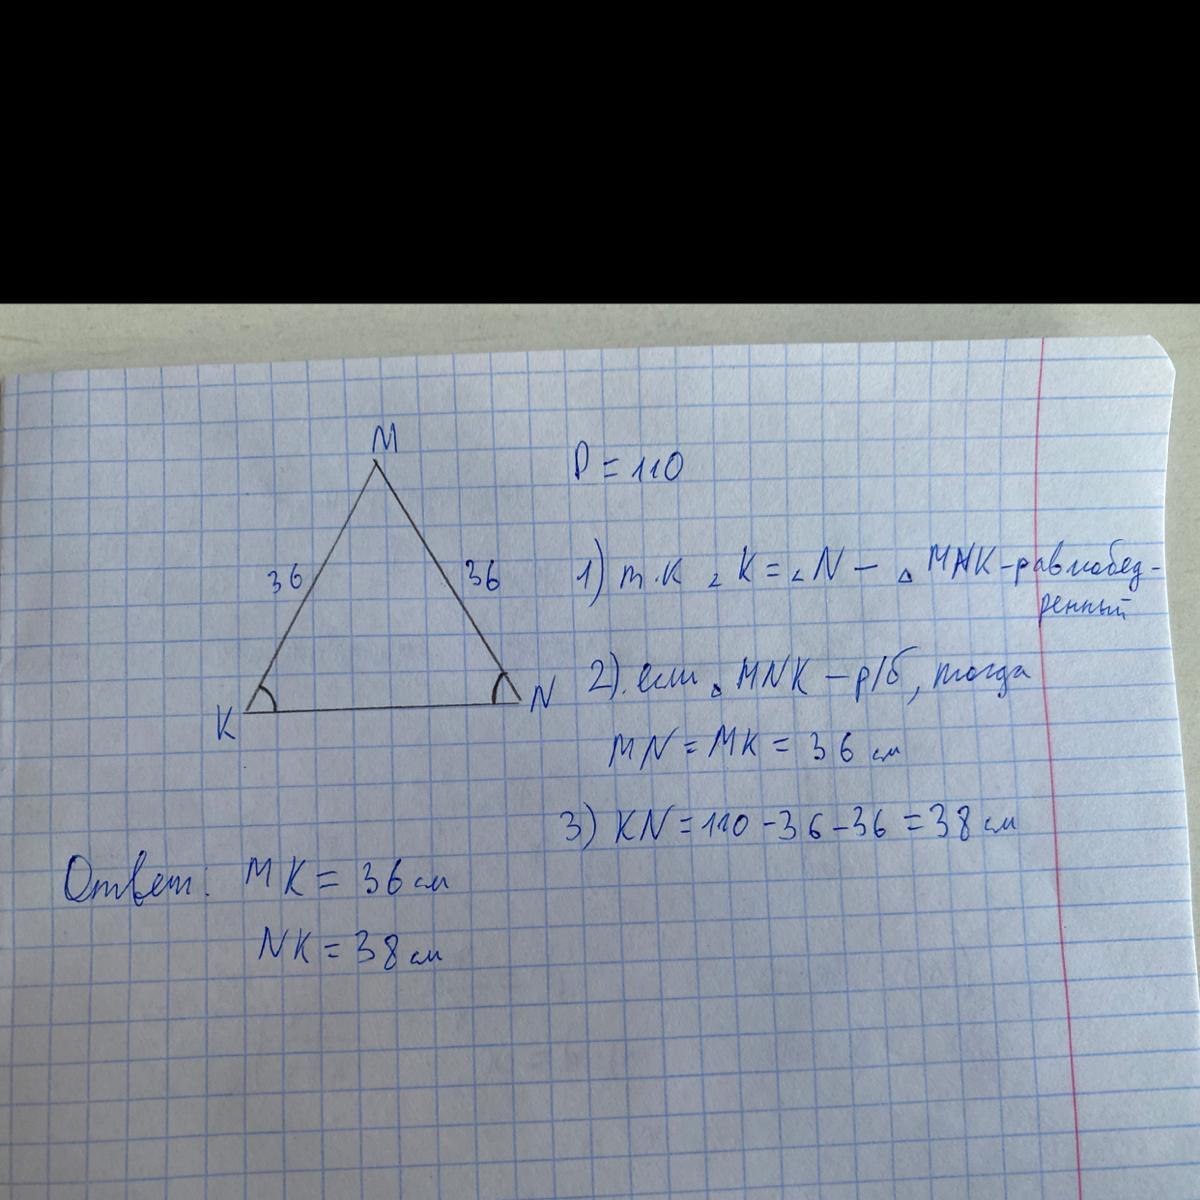 M
P = 110
36
36
1) т.к ∠K = ∠N – △MNK - равнобед-
ренный
K
N
2). если △MNK – р/б, тогда
MN = MK = 36 см
3) KN = 110 - 36 - 36 = 38 см
Ответ: MK = 36 см
NK = 38 см